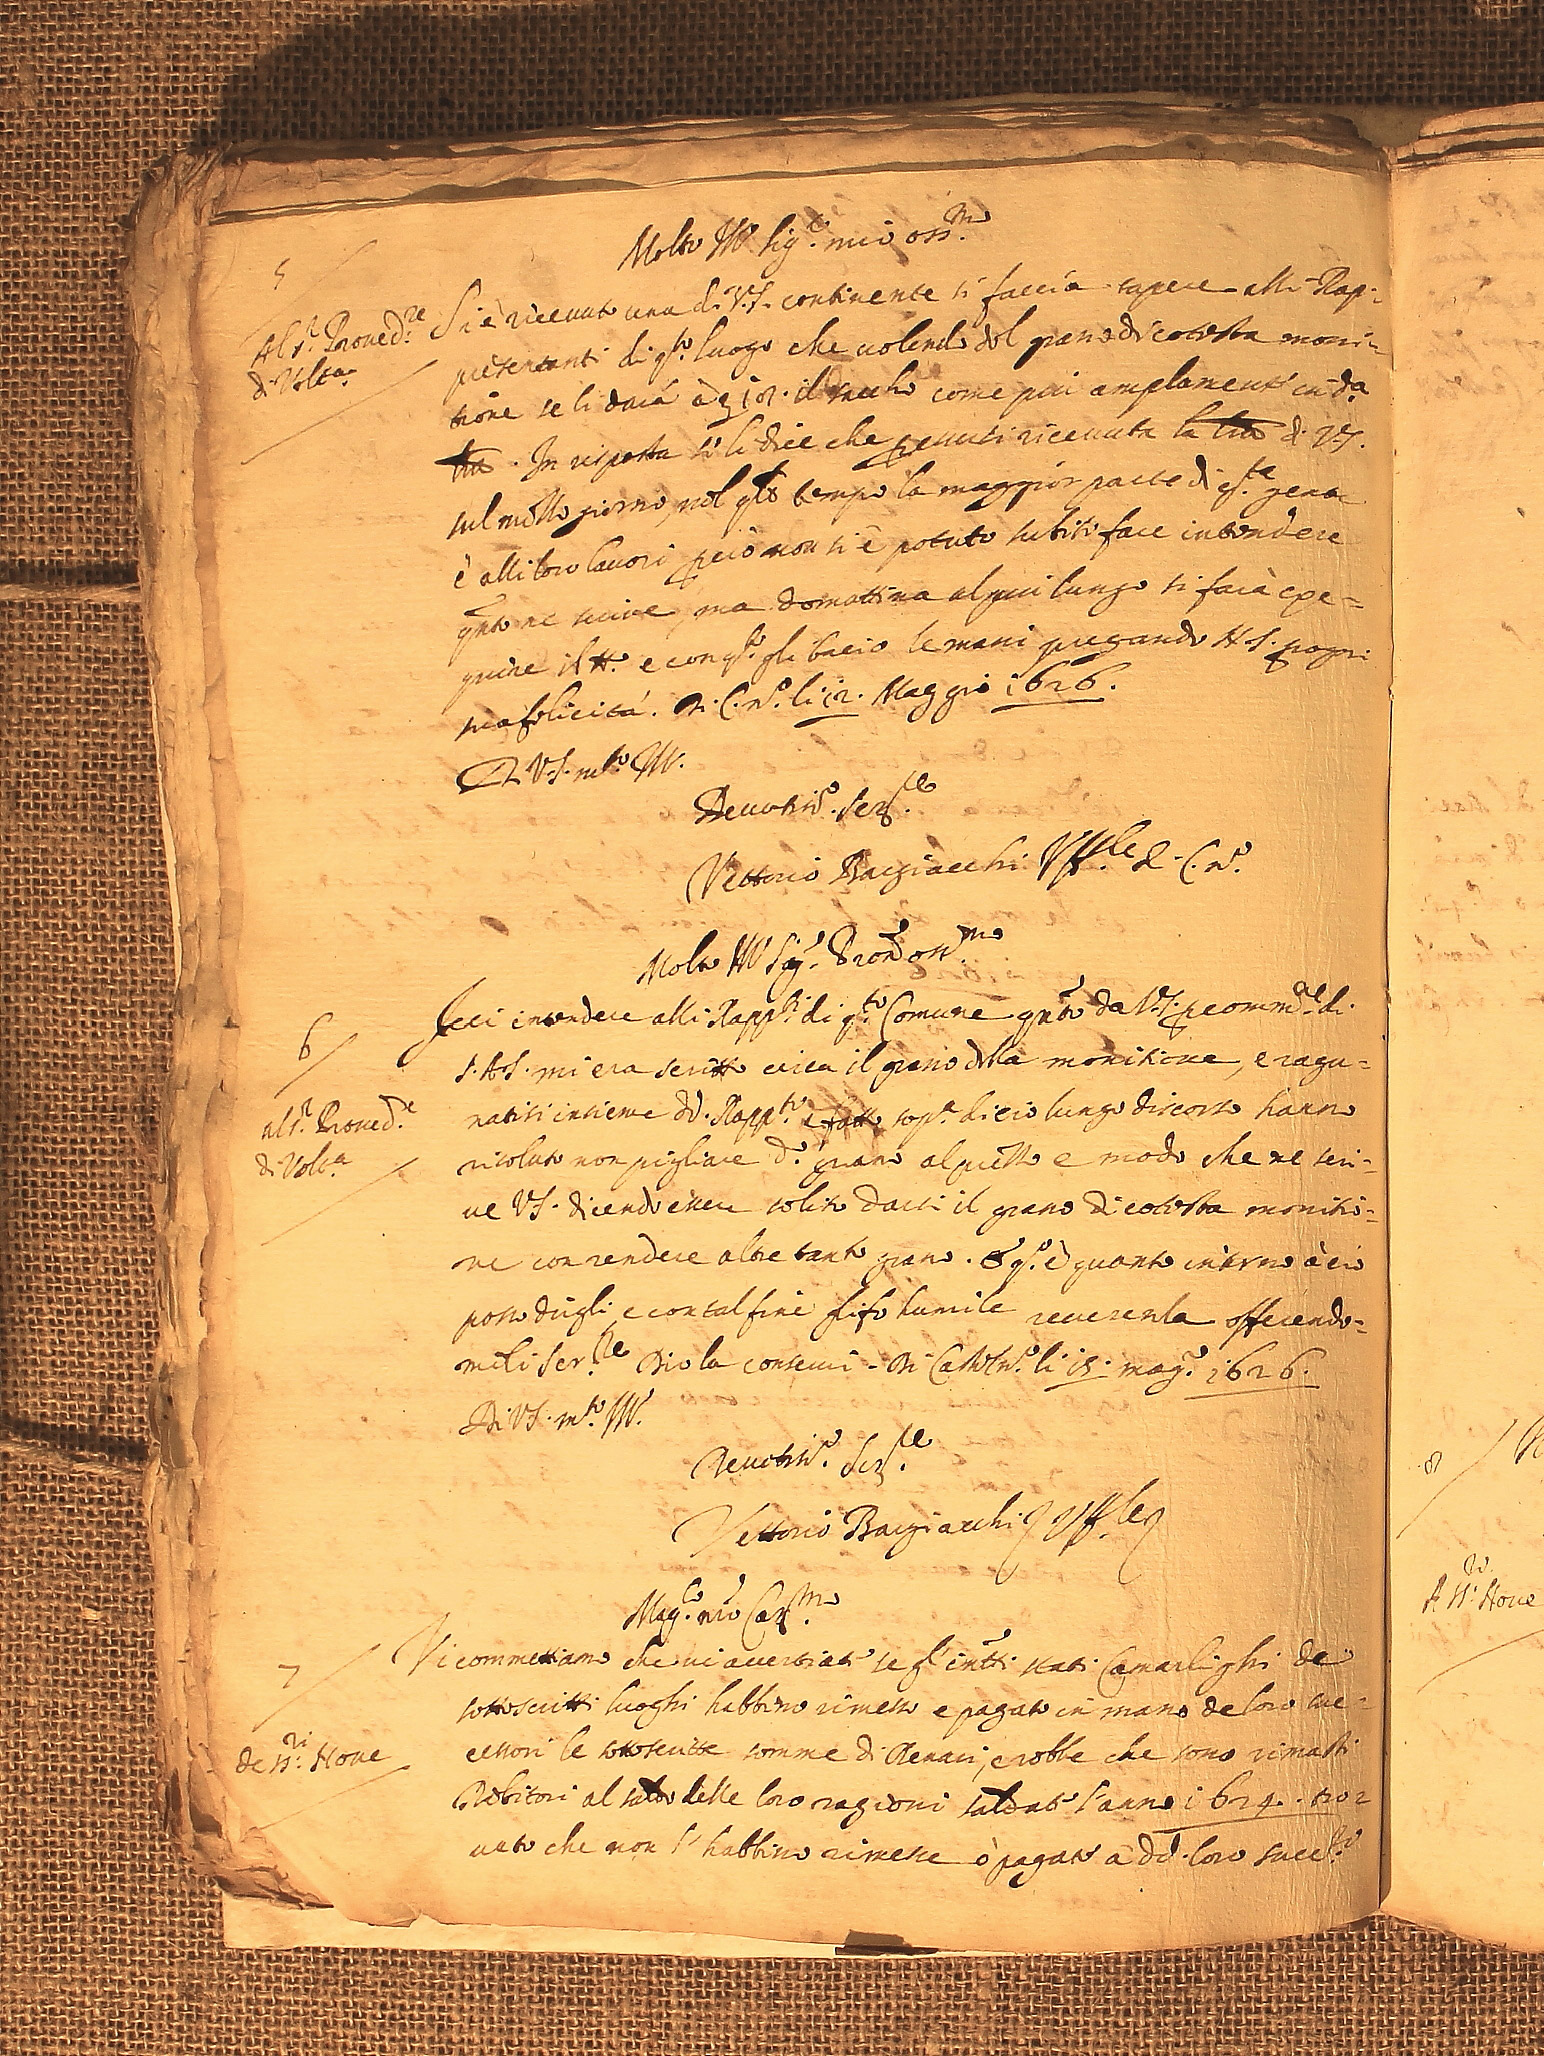 Molto Ill Sig.r mio oss.mo
5
Al S.r Proued.re
di Volt.a
Si è riceuuto una di V.S. continente si faccia sapere alli Rap-
presentanti di q.to luogo che uolendo del grano di cotesta moni-
tione se li darà à il sacho come più amplamente in d.a
lra. In risposta si li dice che hauuta la lra di V.S.
sul mezzo giorno, nel q.le tempo la maggior parte di q.ta gente
è alli loro lauori però non si è potuto subito fare intendere
q.nto ne scriue, ma domattina al più lungo si farà ese=
guire il tt.o e con q.to gli bacio le mani pregando N.S. ogni
sua felicità. Di C. n.o li 12. Maggio 1626.
Di V.S. mlt.o Ill.
Deuotiss.o ser.re
Vettorio Bargiacchi Uff.le d. C. n.o
Molto Ill Sig.r Pron oss.mo
6
al S.r Proued.re
di Volt.a
Feci intendere alli Rapp.ti di q.to Comune q.nto da V.S. p comm.ne di
S.A.S. mi era scritto circa il grano della monitione, e ragu=
natisi insieme dd. Rapp.ti e fatto sop.a di cio lungo discorso hanno
risoluto non pigliare d.o grano al prezzo e modo che ne scri=
ue V.S. dicendo essere solito darsi il grano di cotesta moniti=
ne con rendere altre tanto grano. E q.to è quanto intorno à cio
posso dirgli, e con tal fine gli fo humile reuerenza offerendo=
meli ser.re Dio la conserui. Di Castel n.o li 15. mag.o 1626.
Di V.S. m.to Ill.
Deuotiss.o Ser.re
Vettorio Bargiacchi Uff.le
Mag.co nro Car.mo
7
de SS.ri Noue
Vi commettiamo che ui accertiate se gl' infri stati Camarlinghi de
sottoscritti luoghi habbino rimesso e pagato in mano de loro suc=
cessori le sottoscritte somme di denari, e robbe che sono rimasti
debitori al saldo delle loro ragioni saldate l'anno 1624. tro=
uato che non l' habbino rimesse ò pagate a dd. loro succ.ri
8
A SS.ri Noue